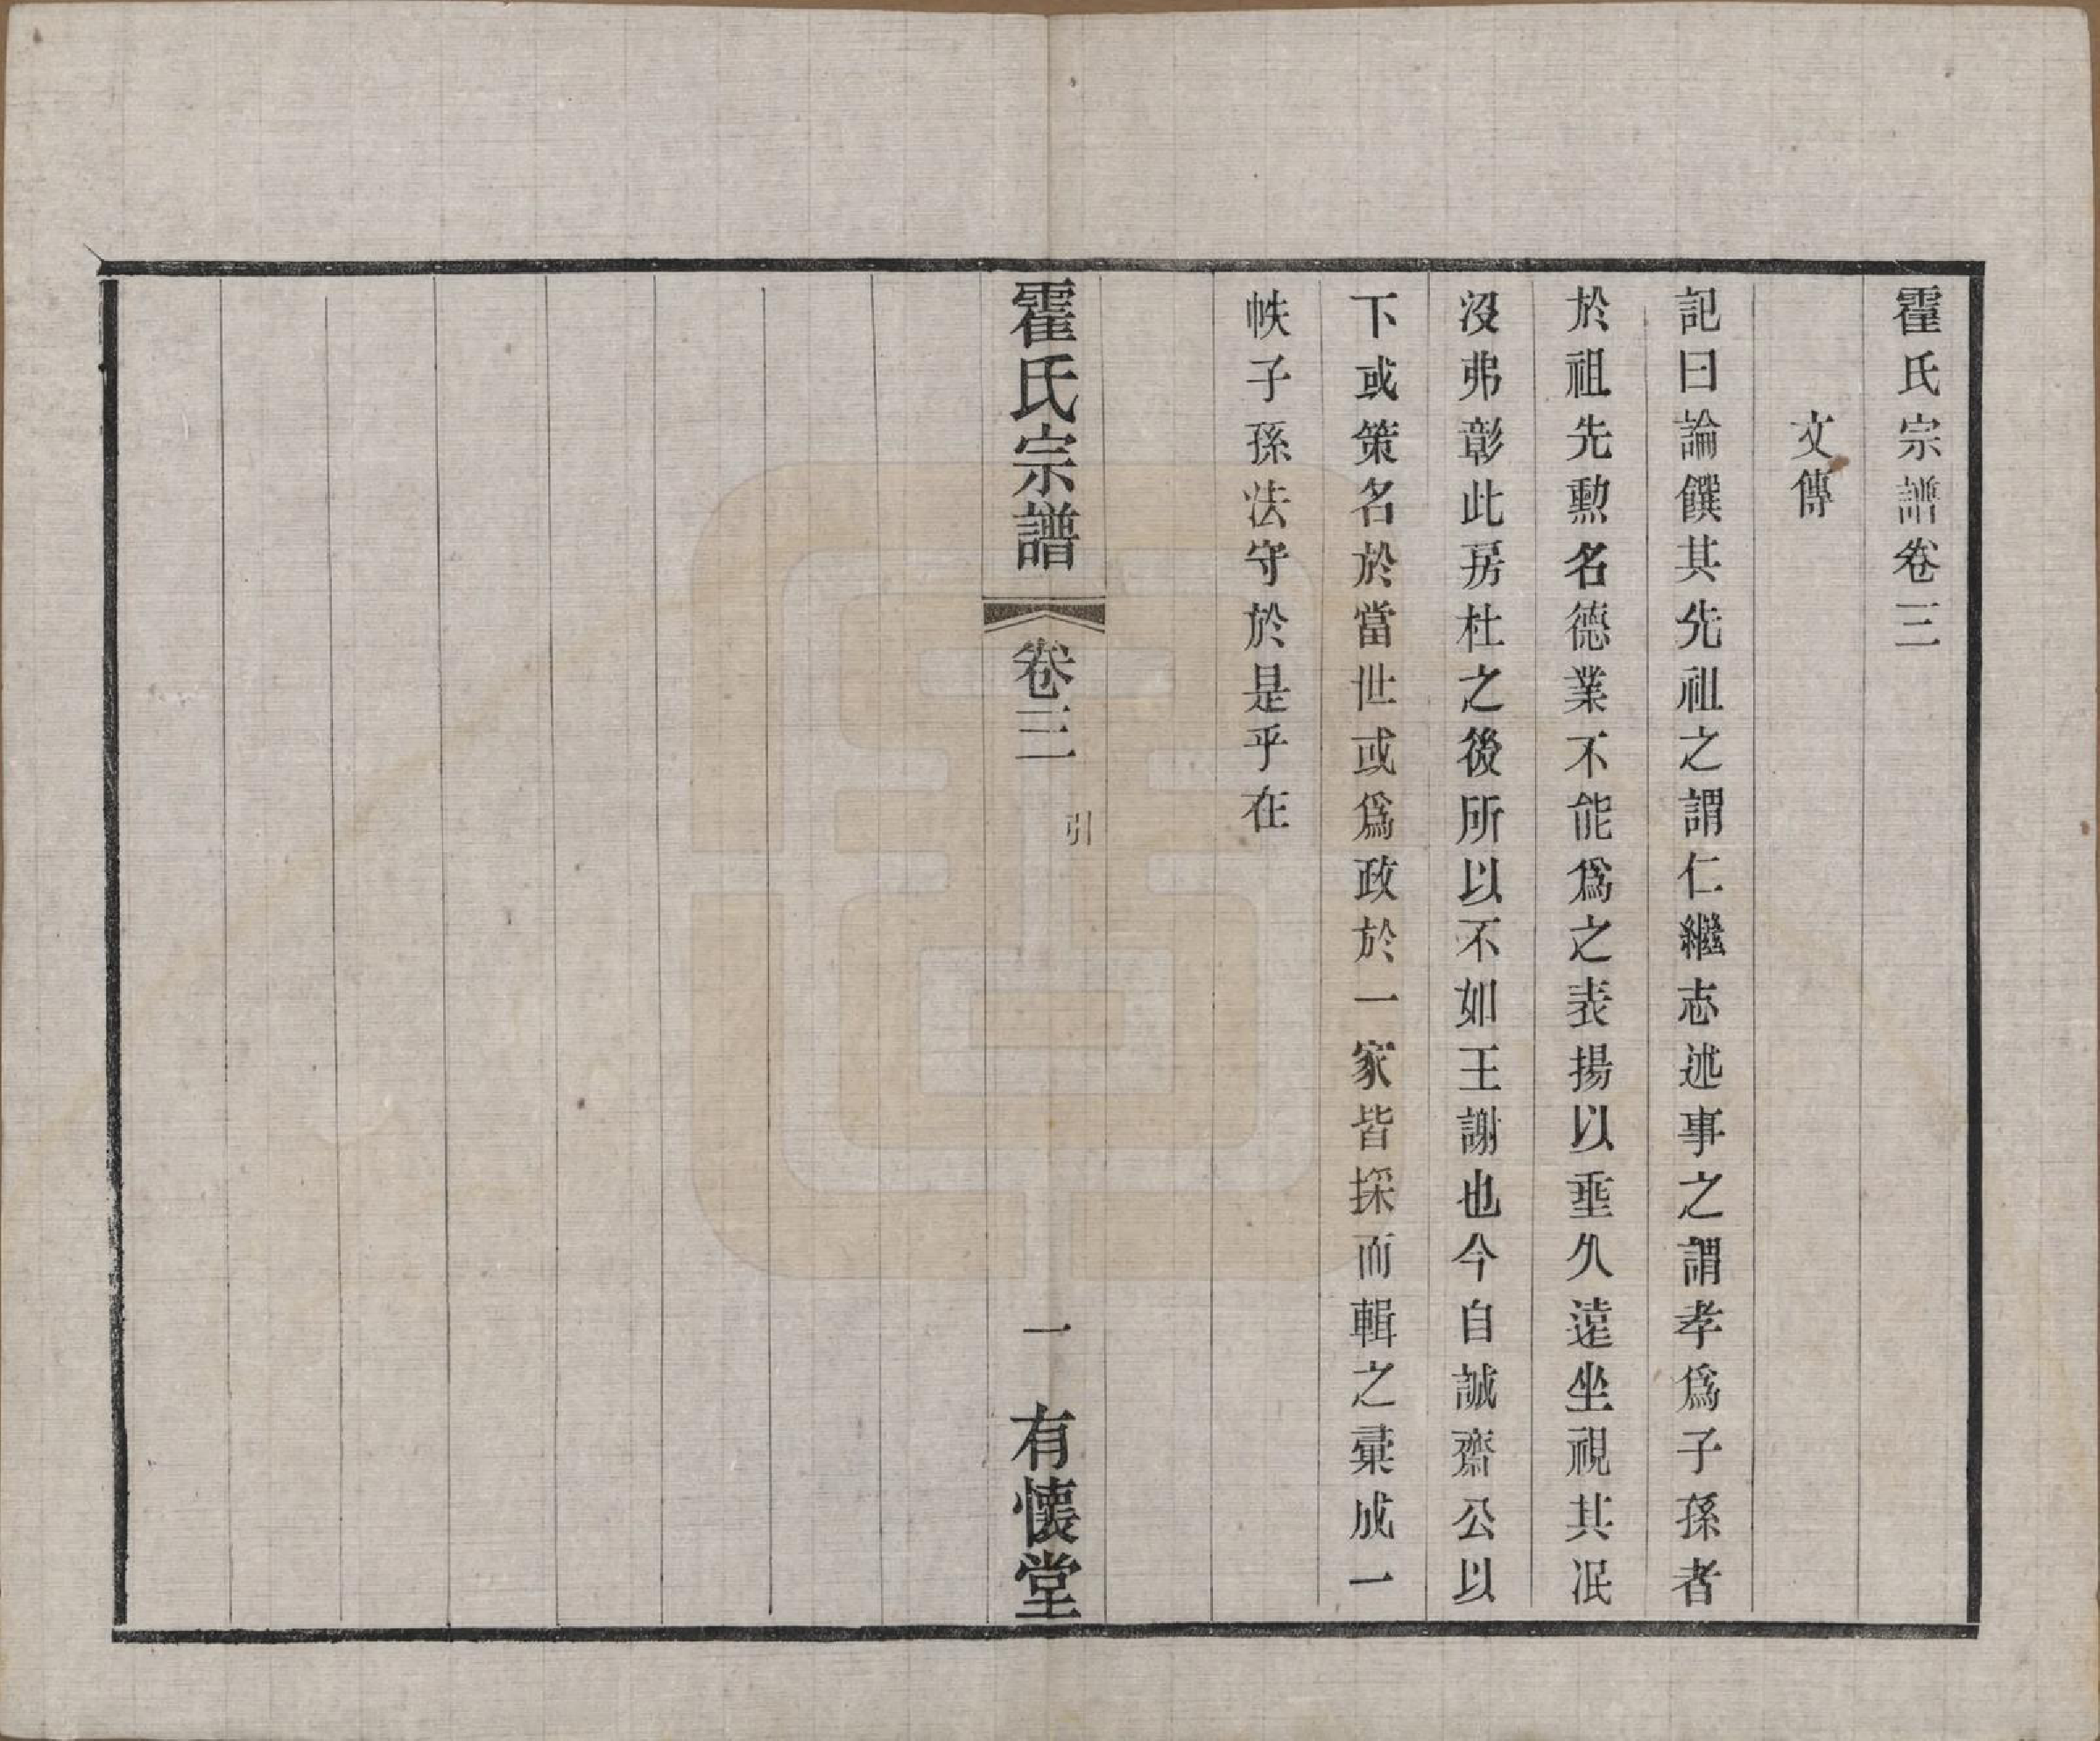 霍氏宗譜卷三
文傳
記曰論饌其先祖之謂仁繼志述事之謂孝爲子孫者
於祖先勲名德業不能爲之表揚以垂久遠坐視其泯
沒弗彰此房杜之後所以不如王謝也今自誠齋公以
下或策名於當世或爲政於一家皆採而輯之彙成一
帙子孫法守於是乎在
霍氏宗譜
卷三
引
一
有懷堂